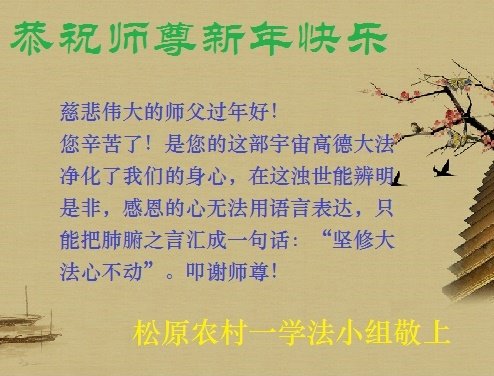 恭祝师尊新年快乐
慈悲伟大的师父过年好！
您辛苦了！是您的这部宇宙高德大法
净化了我们的身心，在这浊世能辨明
是非，感恩的心无法用语言表达，只
能把肺腑之言汇成一句话：“坚修大
法心不动”。叩谢师尊！
松原农村一学法小组敬上